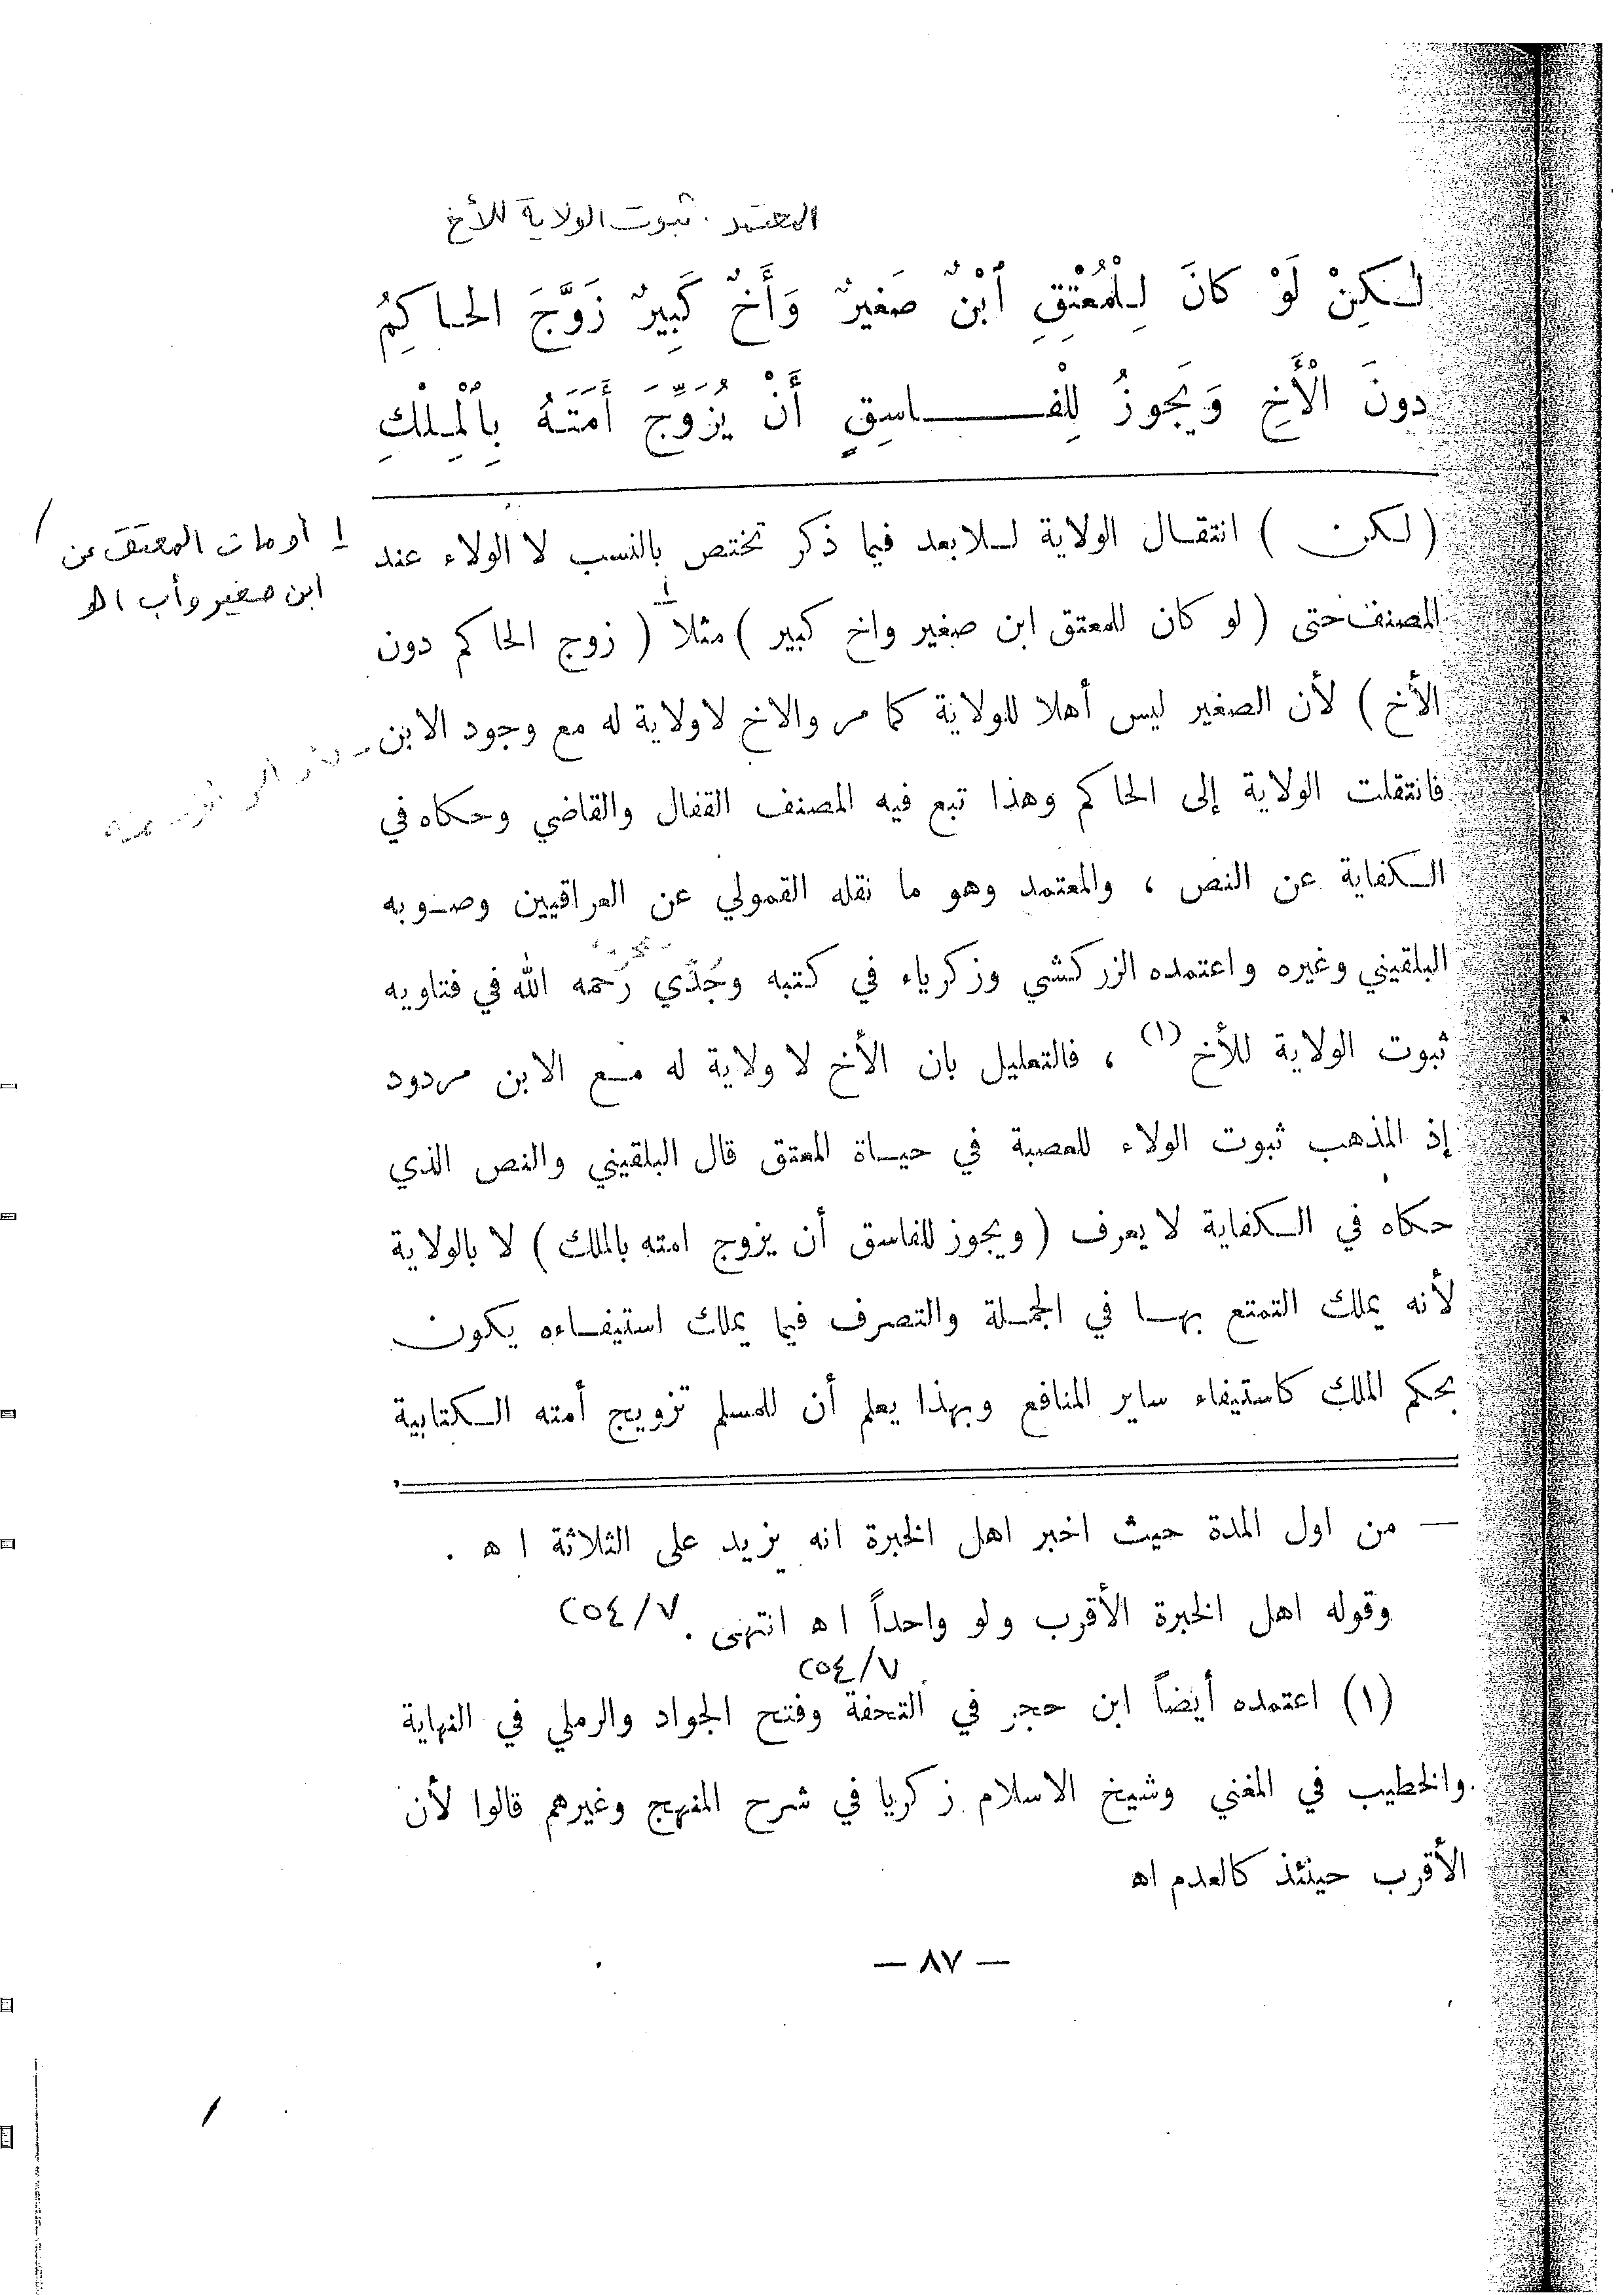 المعتمد . ثبوت الولاية للأخ
لٰكِنْ لَوْ كانَ لِلْمُعْتِقِ ٱبْنٌ صَغيرٌ وَأَخٌ كَبِيرٌ زَوَّجَ الحاكِمُ
دونَ الْأَخِ وَيَجوزُ لِلْفاسِقِ أَنْ يُزَوِّجَ أَمَتَهُ بِٱلْمِلْكِ
( لكن ) انتقال الولاية للابعد فيما ذكر تختص بالنسب لا الولاء عند
المصنف حتى ( لو كان للمعتق ابن صغير واخ كبير ) مثلاً ( زوج الحاكم دون
الأخ ) لأن الصغير ليس أهلا للولاية كما مر والاخ لا ولاية له مع وجود الابن
فانتقلت الولاية إلى الحاكم وهذا تبع فيه المصنف القفال والقاضي وحكاه في
الكفاية عن النص ، والمعتمد وهو ما نقله القمولي عن العراقيين وصوبه
البلقيني وغيره واعتمده الزركشي وزكرياء في كتبه وجَدّي رحمه الله في فتاويه
ثبوت الولاية للأخ (١) ، فالتعليل بان الأخ لا ولاية له مع الابن مردود
إذ المذهب ثبوت الولاء للعصبة في حياة المعتق قال البلقيني والنص الذي
حكاه في الكفاية لا يعرف ( ويجوز للفاسق أن يزوج امته بالملك ) لا بالولاية
لأنه يملك التمتع بها في الجملة والتصرف فيما يملك استيفاءه يكون
بحكم الملك كاستيفاء ساير المنافع وبهذا يعلم أن للمسلم تزويج أمته الكتابية
ا أو مات المعتق عن
ابن صغير وأب اهـ
— من اول المدة حيث اخبر اهل الخبرة انه يزيد على الثلاثة اه .
وقوله اهل الخبرة الأقرب ولو واحداً اه انتهى . ٢٥٤/٧
٢٥٤/٧
(١) اعتمده أيضاً ابن حجر في التحفة وفتح الجواد والرملي في النهاية
والخطيب في المغني وشيخ الاسلام زكريا في شرح المنهج وغيرهم قالوا لأن
الأقرب حينئذ كالعدم اه
— ٨٧ —